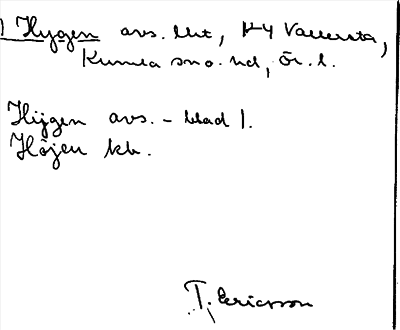 1 Hygen avs. lht, H-4 Vallersta,
Kumla sn o. hd, Ör. l.
Hijgen avs. – blad 1.
Höjen kb.
T. Ericsson